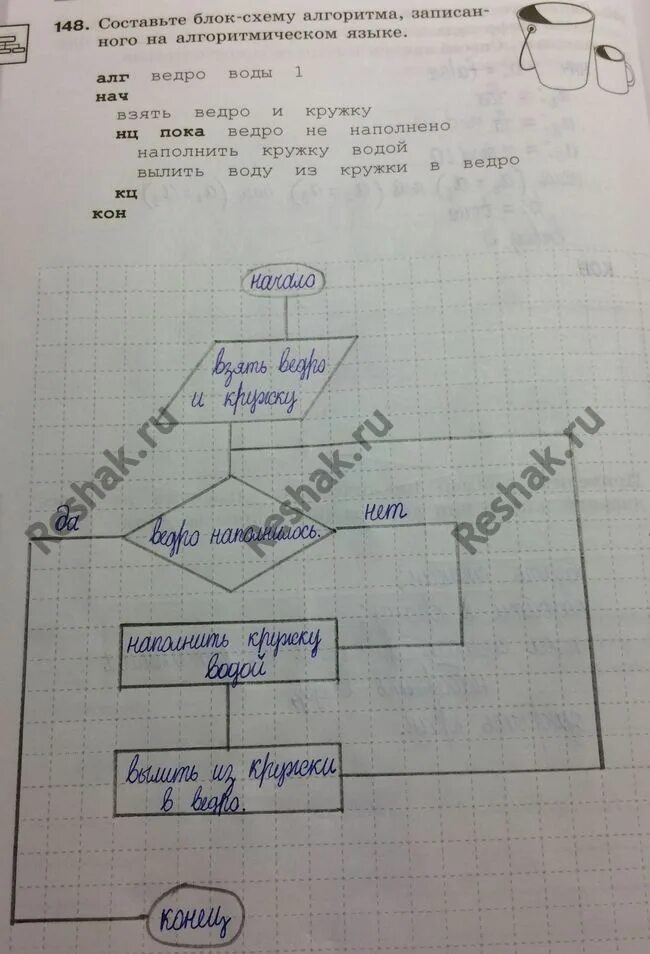 148. Составьте блок-схему алгоритма, записан-
ного на алгоритмическом языке.
алг ведро воды 1
нач
взять ведро и кружку
нц пока ведро не наполнено
наполнить кружку водой
вылить воду из кружки в ведро
кц
кон
начало
взять ведро
и кружку
да
ведро наполнилось.
нет
наполнить кружку
водой
вылить из кружки
в ведро.
конец
Reshak.ru
Reshak.ru
Reshak.ru